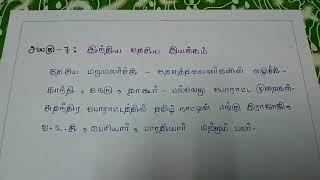 அலகு-7: இந்திய தேசிய இயக்கம்
தேசிய மறுமலர்ச்சி - தேசத்தலைவர்களின் எழுச்சி-
காந்தி, நேரு, தாகூர் - பல்வேறு போராட்ட முறைகள்-
சுதந்திர போராட்டத்தில் தமிழ் நாட்டின் பங்கு இராஜாஜி,
வ.உ.சி, பெரியார், பாரதியார் மற்றும் பலர்.